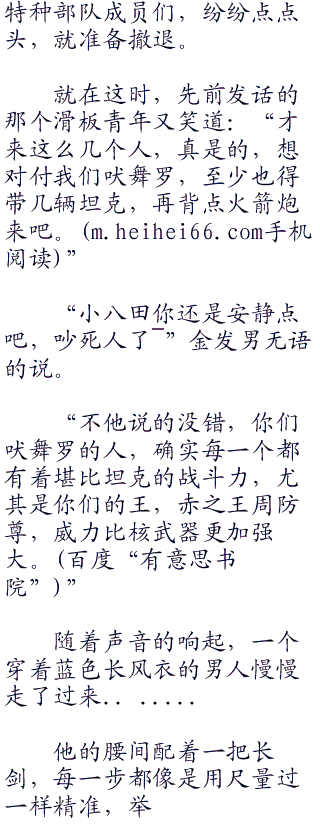 特种部队成员们，纷纷点点
头，就准备撤退。
就在这时，先前发话的
那个滑板青年又笑道：“才
来这么几个人，真是的，想
对付我们吠舞罗，至少也得
带几辆坦克，再背点火箭炮
来吧。(m.heihei66.com手机
阅读)”
“小八田你还是安静点
吧，吵死人了¯”金发男无语
的说。
“不他说的没错，你们
吠舞罗的人，确实每一个都
有着堪比坦克的战斗力，尤
其是你们的王，赤之王周防
尊，威力比核武器更加强
大。(百度“有意思书
院”)”
随着声音的响起，一个
穿着蓝色长风衣的男人慢慢
走了过来.. .....
他的腰间配着一把长
剑，每一步都像是用尺量过
一样精准，举